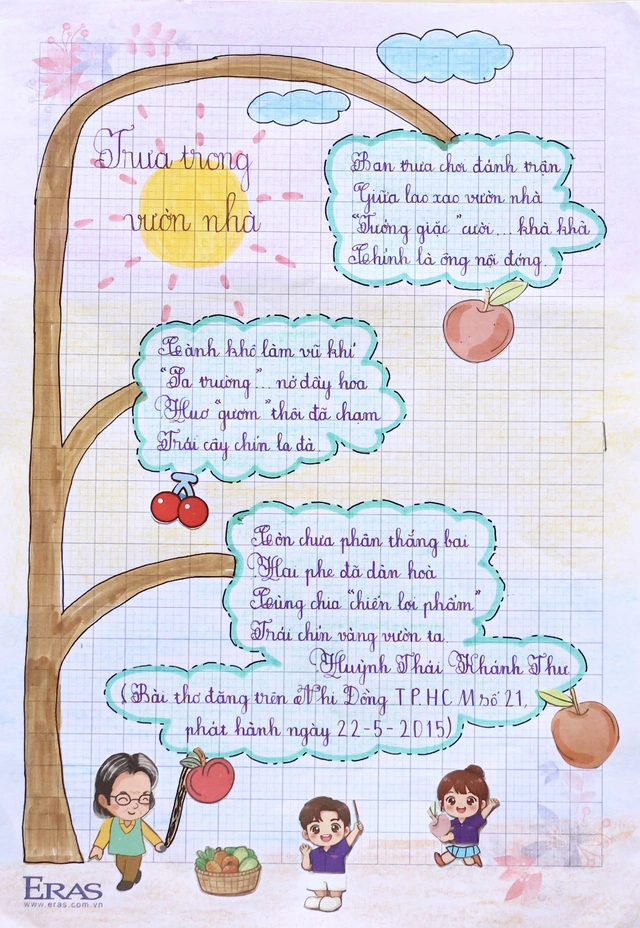 Trưa trong
vườn nhà
Ban trưa chơi đánh trận
Giữa lao xao vườn nhà
"Tướng giặc" cười... khà khà
Chính là ông nội đóng.
Cành khô làm vũ khí
"Sa trường"... nở đầy hoa
Huơ "gươm" thôi đã chạm
Trái cây chín la đà.
Còn chưa phân thắng bại
Hai phe đã dàn hoà
Cùng chia "chiến lợi phẩm"
Trái chín vàng vườn ta.
Huỳnh Thái Khánh Thư
(Bài thơ đăng trên Nhi Đồng TP.HCM số 21,
phát hành ngày 22-5-2015)
ERAS
www.eras.com.vn